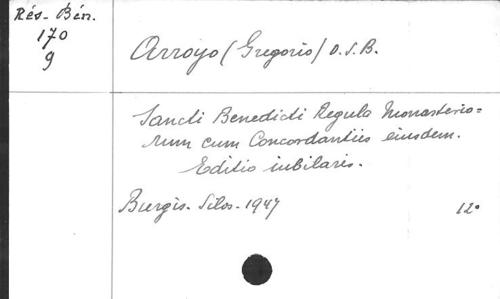 Rés. Bén.
170
9
Arroyo (Gregorio) O.S.B.
Sancti Benedicti Regula Monasterio=
rum cum Concordantiis eiusdem.
Editio iubilaris.
Burgis. Silos. 1947 12°